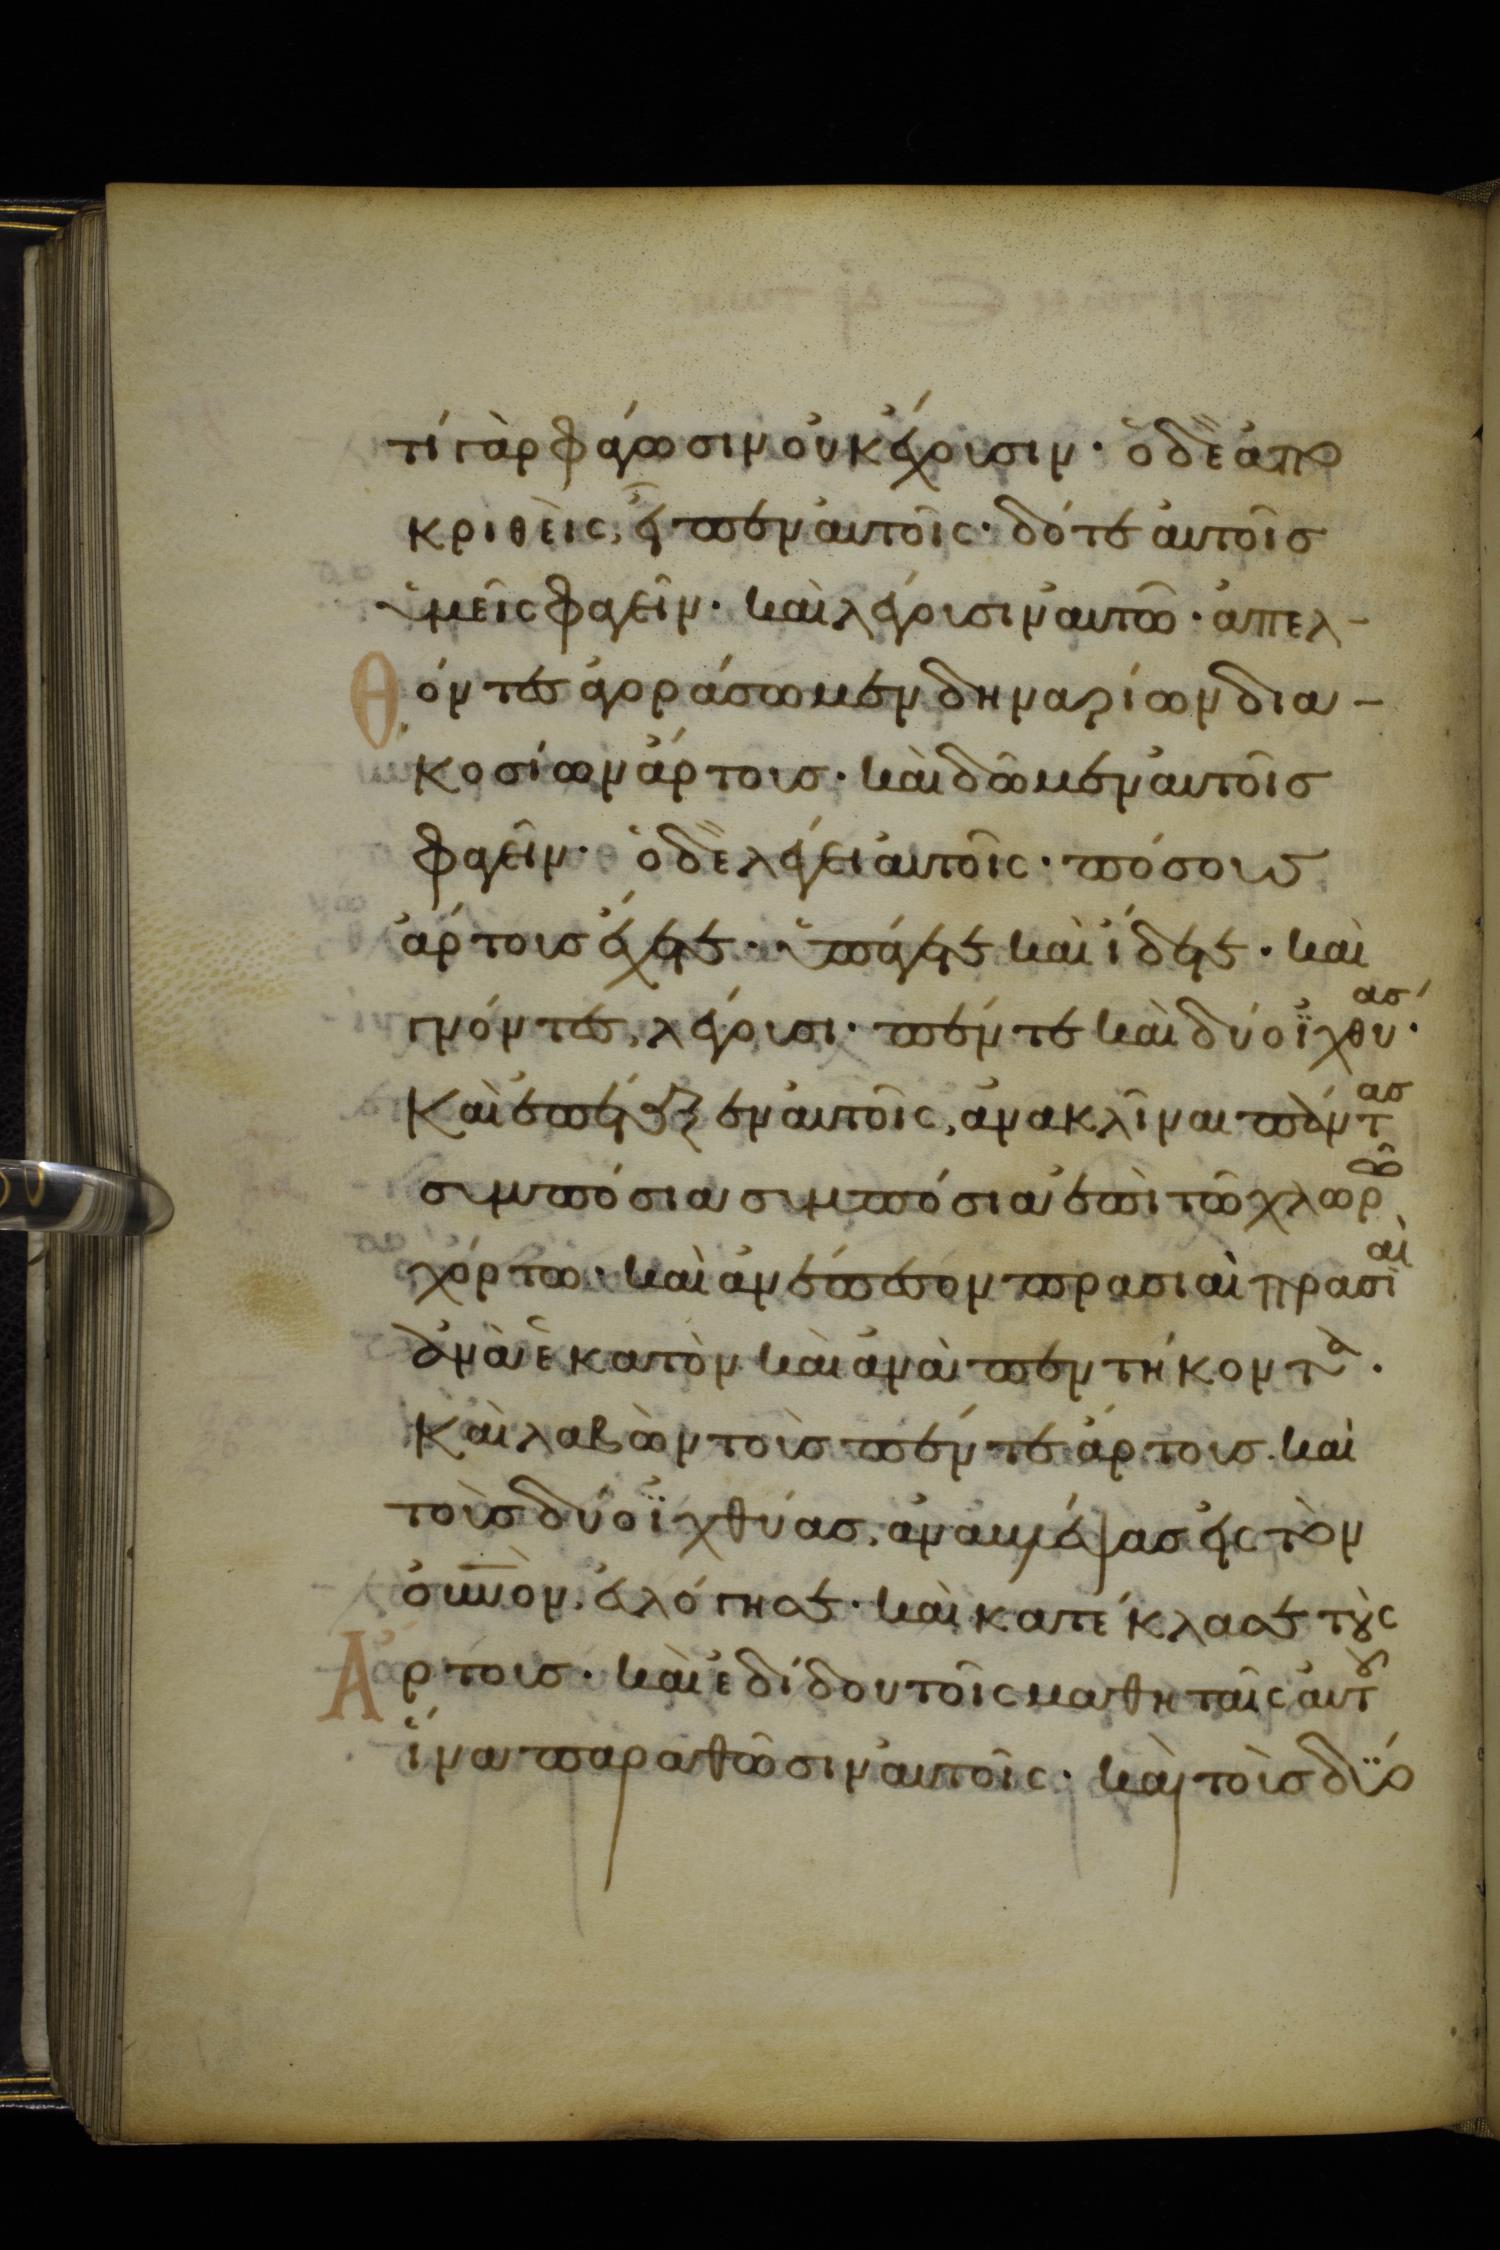 τί γὰρ φάγωσιν οὐκ ἔχουσιν· ὁ δὲ ἀπο
κριθεὶς, εἶπεν αὐτοῖς· δότε αὐτοῖσ
ὑμεῖς φαγεῖν· καὶ λέγουσιν αὐτῶ· ἀπελ-
θόντες ἀγοράσωμεν δηναρίων δια-
κοσίων ἄρτους· καὶ δῶμεν αὐτοῖσ
φαγεῖν· ὁ δὲ λέγει αὐτοῖς· πόσουσ
ἄρτους ἔχετε· ὑπάγετε καὶ ἴδετε· καὶ
γνόντες, λέγουσι· πέντε καὶ δύο ἰχθύας·
Καὶ ἐπέταξεν αὐτοῖς, ἀνακλῖναι πάντας
συμπόσια συμπόσια ἐπὶ τῶ χλωρῶ
χόρτω· καὶ ἀνέπεσον πρασιαὶ πρασιαὶ
ἀνὰ ἑκατὸν καὶ ἀνὰ πεντήκοντα·
Καὶ λαβὼν τοὺσ πέντε ἄρτους. καὶ
τοὺσ δύο ἰχθύασ, ἀναβλέψασ εἰς τὸν
οὐνὸν, εὐλόγησε· καὶ κατέκλασε τοὺς
Ἄρτους· καὶ ἐδίδου τοῖς μαθηταῖς αὐτοῦ
ἵνα παραθῶσιν αὐτοῖς· καὶ τοὺσ δύο